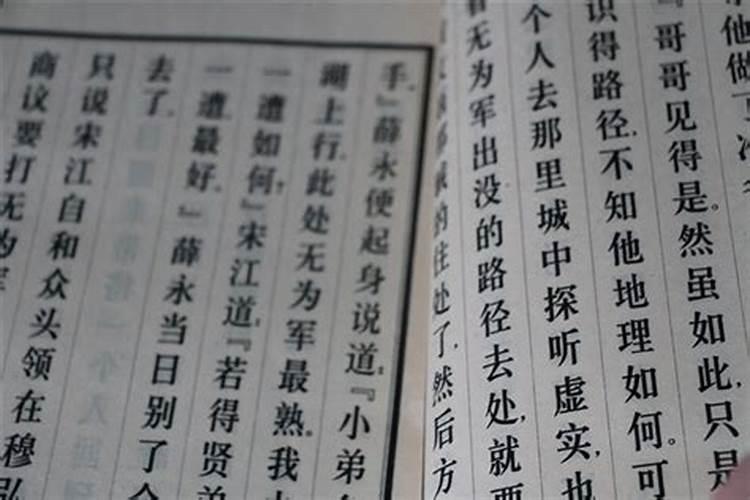 他做
『哥哥见得是。然虽如此,只是
识得路径,不知他地理如何。可
个人去那里城中探听虚实,也
无为军出没的路径去处,就要
的住处了,然后方
手。』薛永便起身说道:『小弟
湖上行,此处无为军最熟。我
一遭如何?』宋江道:『若得贤弟
一遭最好。』薛永当日别了众
去了。
只说宋江自和众头领在穆弘
商议要打无为军